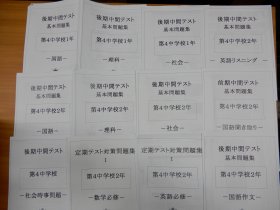 後期中間テスト
基本問題集
第4中学校1年
－国語－
後期中間テスト
基本問題集
第4中学校1年
－理科－
後期中間テスト
基本問題集
第4中学校1年
－社会－
後期中間テスト
基本問題集
第4中学校2年
－英語リスニング－
後期中間テスト
基本問題集
第4中学校2年
－国語－
前期中間テスト
基本問題集
第4中学校2年
－理科－
後期中間テスト
基本問題集
第4中学校2年
－社会－
前期中間テスト
基本問題集
第4中学校2年
－国語聞き取り－
後期中間テスト
基本問題集
第4中学校
－社会時事問題－
定期テスト対策問題集
Ⅰ
第4中学校2年
－数学必修－
定期テスト対策問題集
Ⅰ
第4中学校2年
－英語必修－
後期中間テスト
基本問題集
第4中学校2年
－国語作文－